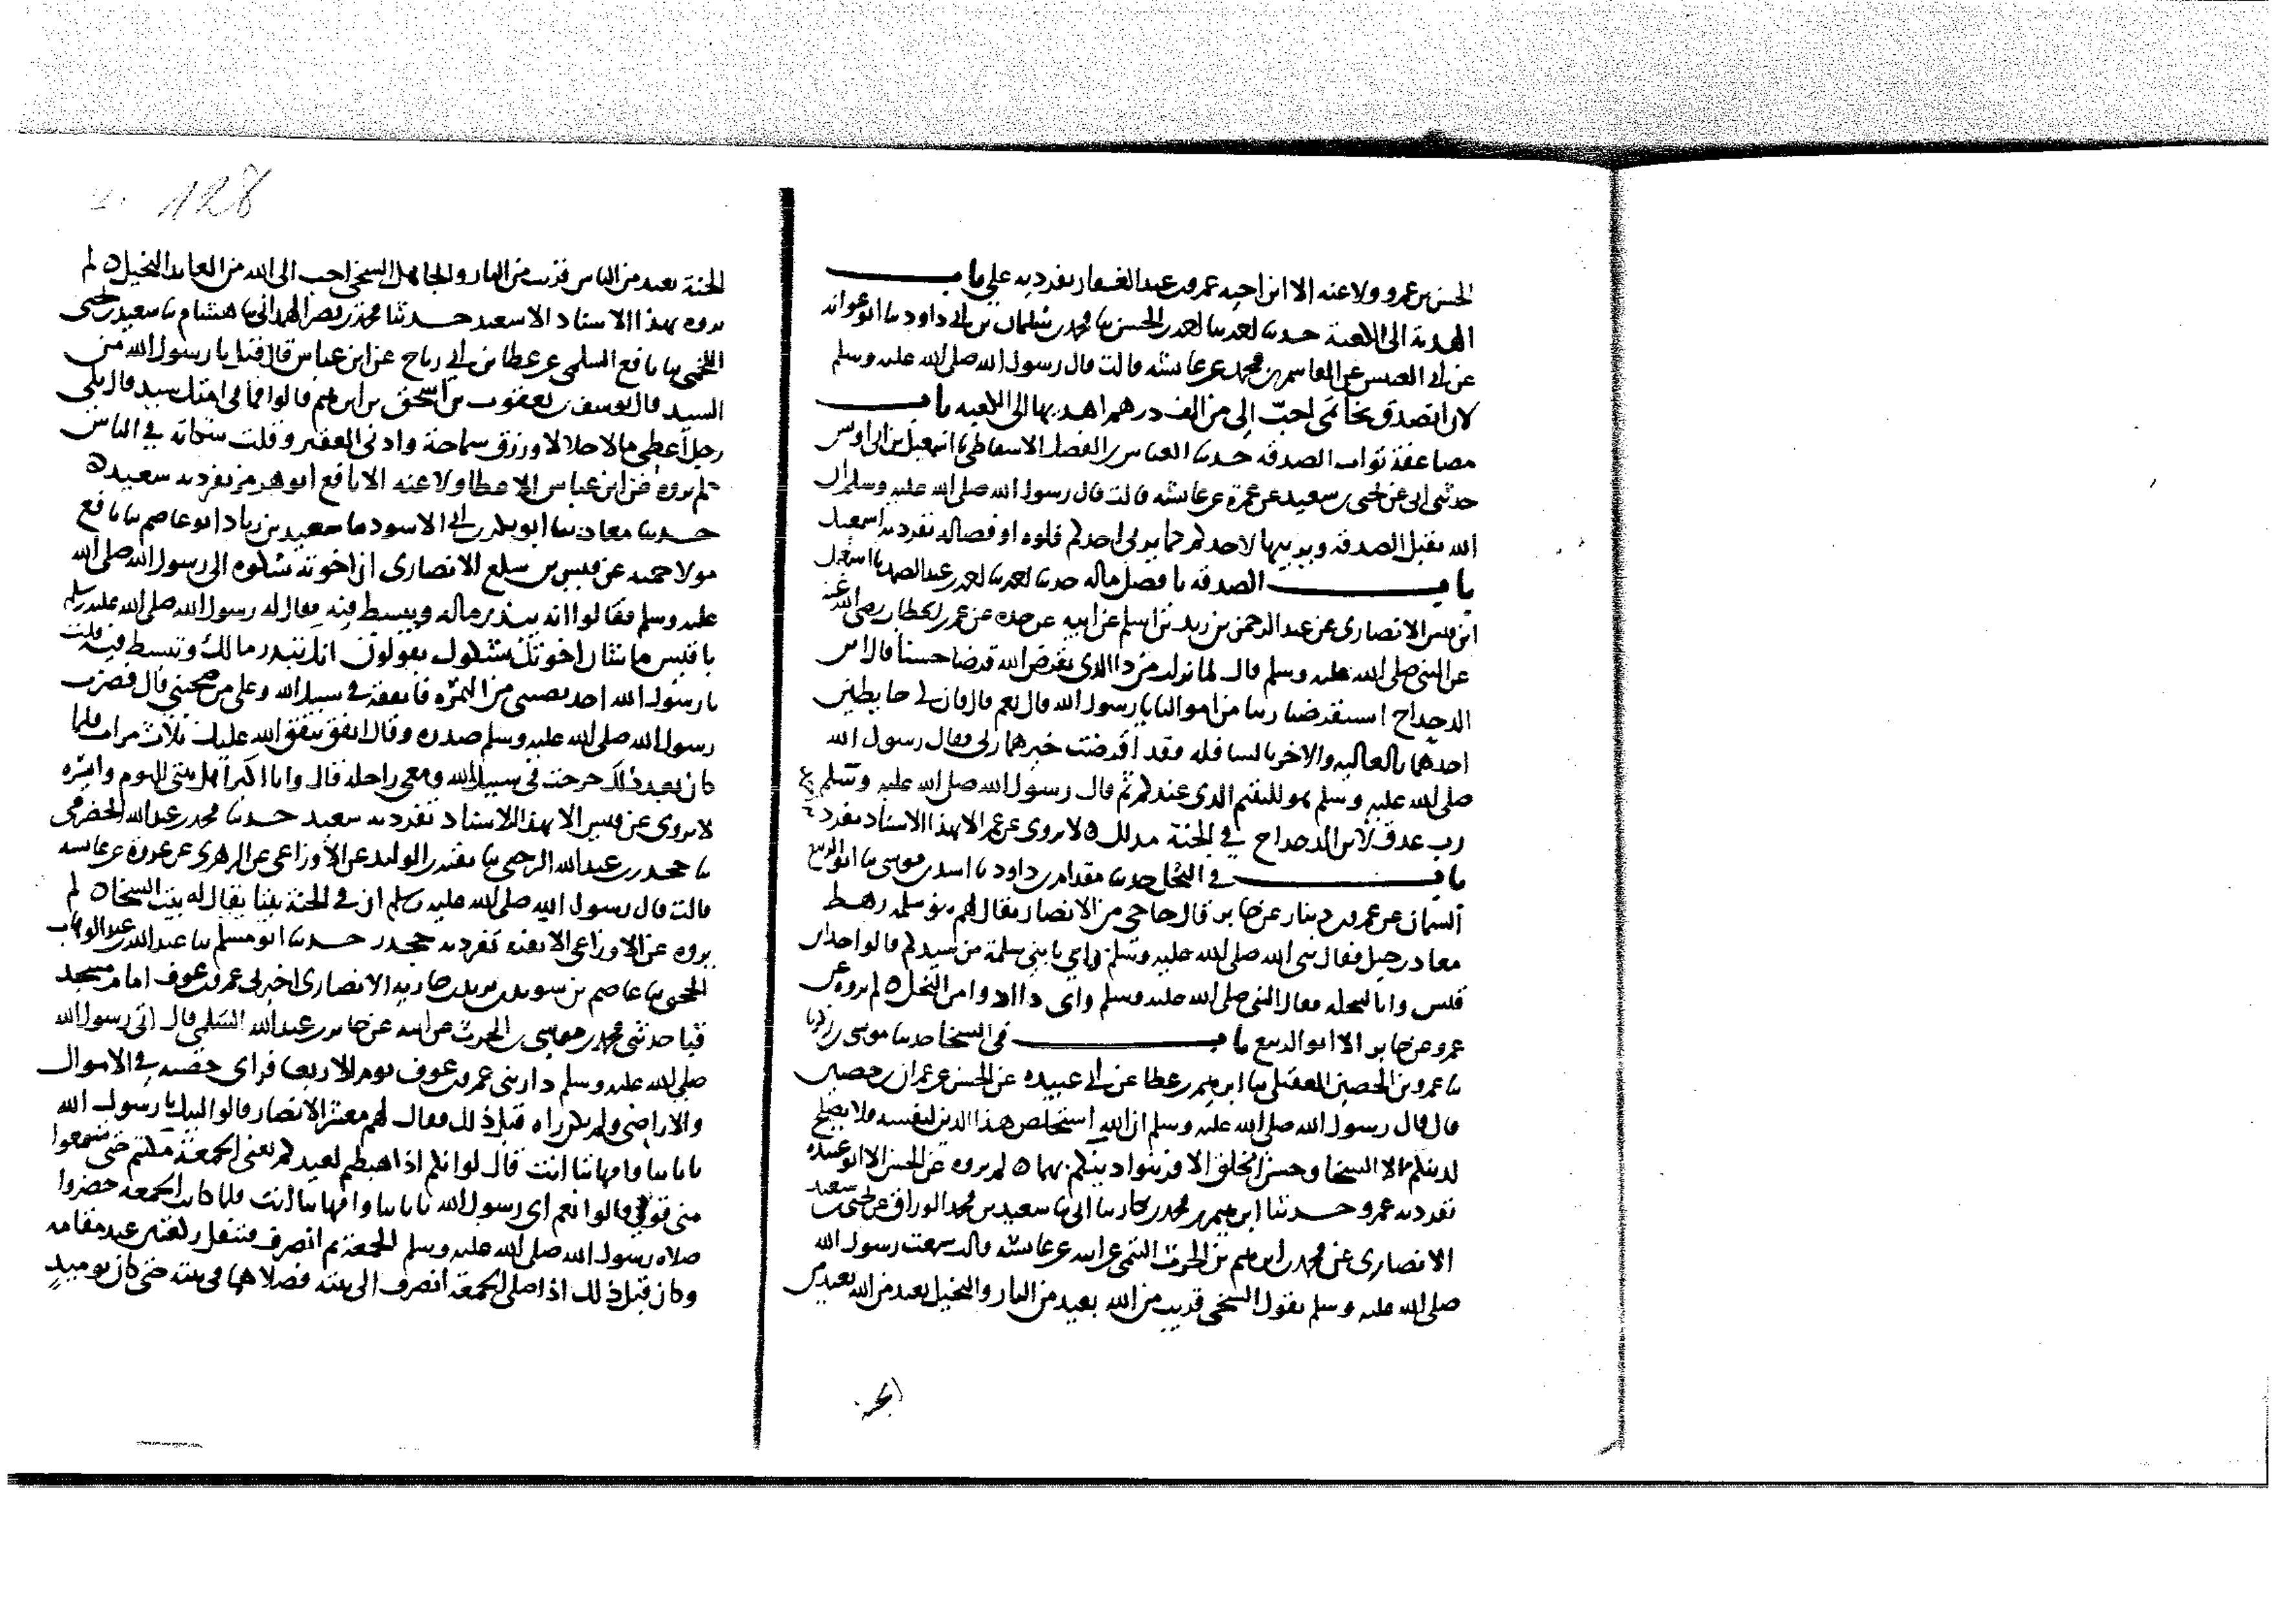 الحسن بن عمرو ولا عنه الا ابن اخيه عمرو بن عبد الغفار تفرد به علي باب
الهدية الى الكعبة حدثنا احمد بنا احمد بن الحسن بنا محمد بن سليمان بن ابي داود بنا ابو عوانه
عن ابي العنبس عن القاسم بن محمد عن عائشه قالت قال رسول الله صلى الله عليه وسلم
لان اتصدق بخاتمي احبّ الي من الف درهم اهديها الى الكعبه باب
مضاعفة ثواب الصدقه حدثنا العباس بن الفضل الاسفاطي بنا اسمعيل بن ابي اويس
حدثني ابي عن يحيى بن سعيد عن عمرة عن عائشه قالت قال رسول الله صلى الله عليه وسلم ان
الله يقبل الصدقه ويربيها لاحدكم كما يربي احدكم فلوه او فصاله تفرد به اسمعيل
باب الصدقه بافضل ماله حدثنا احمد بنا احمد بن عبد الصمد بنا اسمعيل
ابن قيس الانصاري عن عبد الرحمن بن زيد بن اسلم عن ابيه عن جده عن عمر بن الخطاب رضي الله عنه
عن النبي صلى الله عليه وسلم قال لما نزلت من ذا الذي يقرض الله قرضا حسنا قال ابن
الدحداح استقرضنا ربنا من اموالنا يا رسول الله قال نعم قال فان لي حايطين
احدهما بالعاليه والاخر بالسافله فقد اقرضت خيرهما ربي فقال رسول الله
صلى الله عليه وسلم هو لليتيم الذي عندكم ثم قال رسول الله صلى الله عليه وسلم
رب عذق لابن الدحداح في الجنة مدلل ٥ لا يروى عن عمر الا بهذا الاسناد تفرد به
باب في البخل حدثنا مقدام بن داود بنا اسد بن موسى بنا ابو الربيع
السمان عن عمرو بن دينار عن جابر قال جا حي من الانصار يقال لهم بنو سلمه رهط
معاذ بن جبل فقال نبي الله صلى الله عليه وسلم يا بني سلمة من سيدكم قالوا جد بن
قيس وانا لنبخله فقال النبي صلى الله عليه وسلم واي داء ادوا من البخل ٥ لم يروه عن
عمرو عن جابر الا ابو الربيع باب في السخا حدثنا موسى بن زكريا
بنا عمرو بن الحصين العقيلي بنا ابرهيم بن عطا عن ابي عبيده عن الحسن عن عمران بن حصين
قال قال رسول الله صلى الله عليه وسلم ان الله استخلص هذا الدين لنفسه فلا يصلح
لدينكم الا السخا وحسن الخلق الا فزينوا دينكم بهما ٥ لم يروه عن الحسن الا ابو عبيده
تفرد به عمرو حدثنا ابرهيم بن محمد بن بكار بنا ابي بنا سعيد بن محمد الوراق عن يحيى بن سعيد
الانصاري عن محمد بن ابرهيم بن الحرث التيمي عن ابيه عن عائشه قالت سمعت رسول الله
صلى الله عليه وسلم يقول السخي قريب من الله بعيد من النار والبخيل بعيد من الله بعيد من
128
الجنة بعيد من الناس قريب من النار والجاهل السخي احب الى الله من العابد البخيل ٥ لم
يروه بهذا الاسناد الا سعيد حدثنا محمد بن نصر الهمداني بنا هشام بنا سعيد بن يحيى
اللخمي بنا نافع السلمي عن عطا بن ابي رباح عن ابن عباس قال قيل يا رسول الله من
السيد قال يوسف بن يعقوب بن اسحق بن ابرهيم قالوا فما في امتك سيد قال بلى
رجل اعطي مالا حلالا ورزق سماحة وادنى الفقير وقلت شكاته في الناس
لم يروه عن ابن عباس الا عطا ولا عنه الا نافع ابو هرمز تفرد به سعيد ٥
حدثنا معاذ بنا ابو بكر بن ابي الاسود بنا سعيد بن زياد ابو عاصم بنا نافع
مولا حمنه عن قيس بن سلع الانصاري ان اخوته شكوه الى رسول الله صلى الله
عليه وسلم فقالوا انه يبذر ماله ويبسط فيه فقال له رسول الله صلى الله عليه وسلم
يا قيس ما شان اخوتك يشكونك يقولون انك تبذر مالك وتبسط فيه قلت
يا رسول الله اخذ نصيبي من التمره فانفقه في سبيل الله وعلى من صحبني قال فضرب
رسول الله صلى الله عليه وسلم صدره وقال انفق ينفق الله عليك ثلاث مرات فلما
كان بعد ذلك خرجت في سبيل الله ومعي راحله قال وانا اكثر اهل بيتي اليوم وايسره
لا يروى عن قيس الا بهذا الاسناد تفرد به سعيد حدثنا محمد بن عبد الله الحضرمي
بنا جحدر بن عبد الله الرحبي بنا بقيه بن الوليد عن الاوزاعي عن الزهري عن عروة عن عائشه
قالت قال رسول الله صلى الله عليه وسلم ان في الجنة بيتا يقال له بيت السخا ٥ لم
يروه عن الاوزاعي الا بقيه تفرد به جحدر حدثنا ابو مسلم بنا عبد الله بن عبد الوهاب
الحجبي بنا عاصم بن سويد بن يزيد بن جاريه الانصاري اخبرني عمرو بن عوف امام مسجد
قبا حدثني محمد بن موسى بن الحرث عن ابيه عن جابر بن عبد الله السلمي قال اتى رسول الله
صلى الله عليه وسلم دار بني عمرو بن عوف يوم الاربعا فراى حصنه في الاموال
والاراضي ولم يكن راه قبل ذلك فقال لهم معشر الانصار قالوا لبيك يا رسول الله
بابائنا وامهاتنا انت قال لو انكم اذا هبطتم لعيدكم يعني الجمعة مكثتم حتى تسمعوا
مني قولي قالوا نعم اي رسول الله بابائنا وامهاتنا انت فلما كانت الجمعة حضروا
صلاه رسول الله صلى الله عليه وسلم الجمعة ثم انصرف فتنفل ركعتين عند مقامه
وكان قبل ذلك اذا صلى الجمعة انصرف الى بيته فصلاهما في بيته حتى كان يوميذٍ